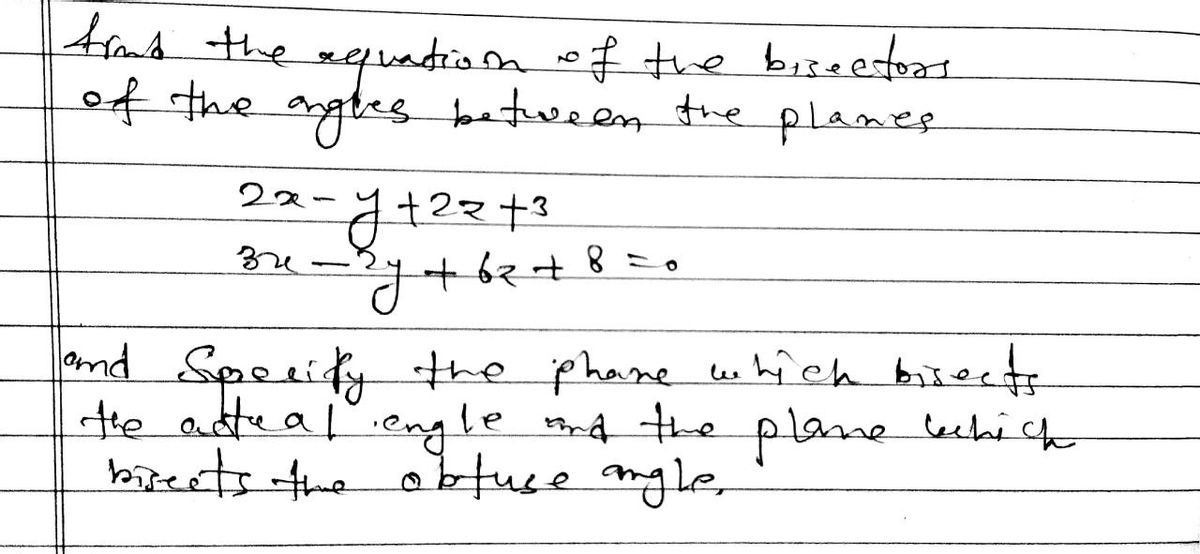 find the equation of the bisectors
of the angles between the planes
2x - y + 2z + 3
3x - 2y + 6z + 8 = 0
and Specify the phane which bisects
the actual engle and the plane which
bisects the obtuse angle.